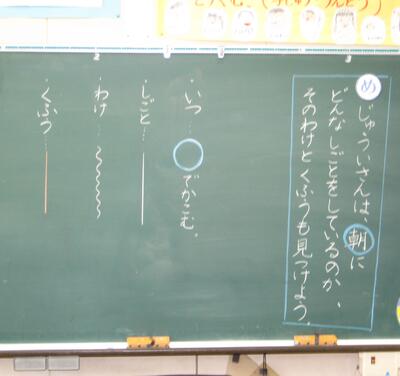 め
じゅういさんは、朝に
どんなしごとをしているのか、
そのわけとくふうも見つけよう。
・いつ…○でかこむ。
・しごと…
・わけ
・くふう…